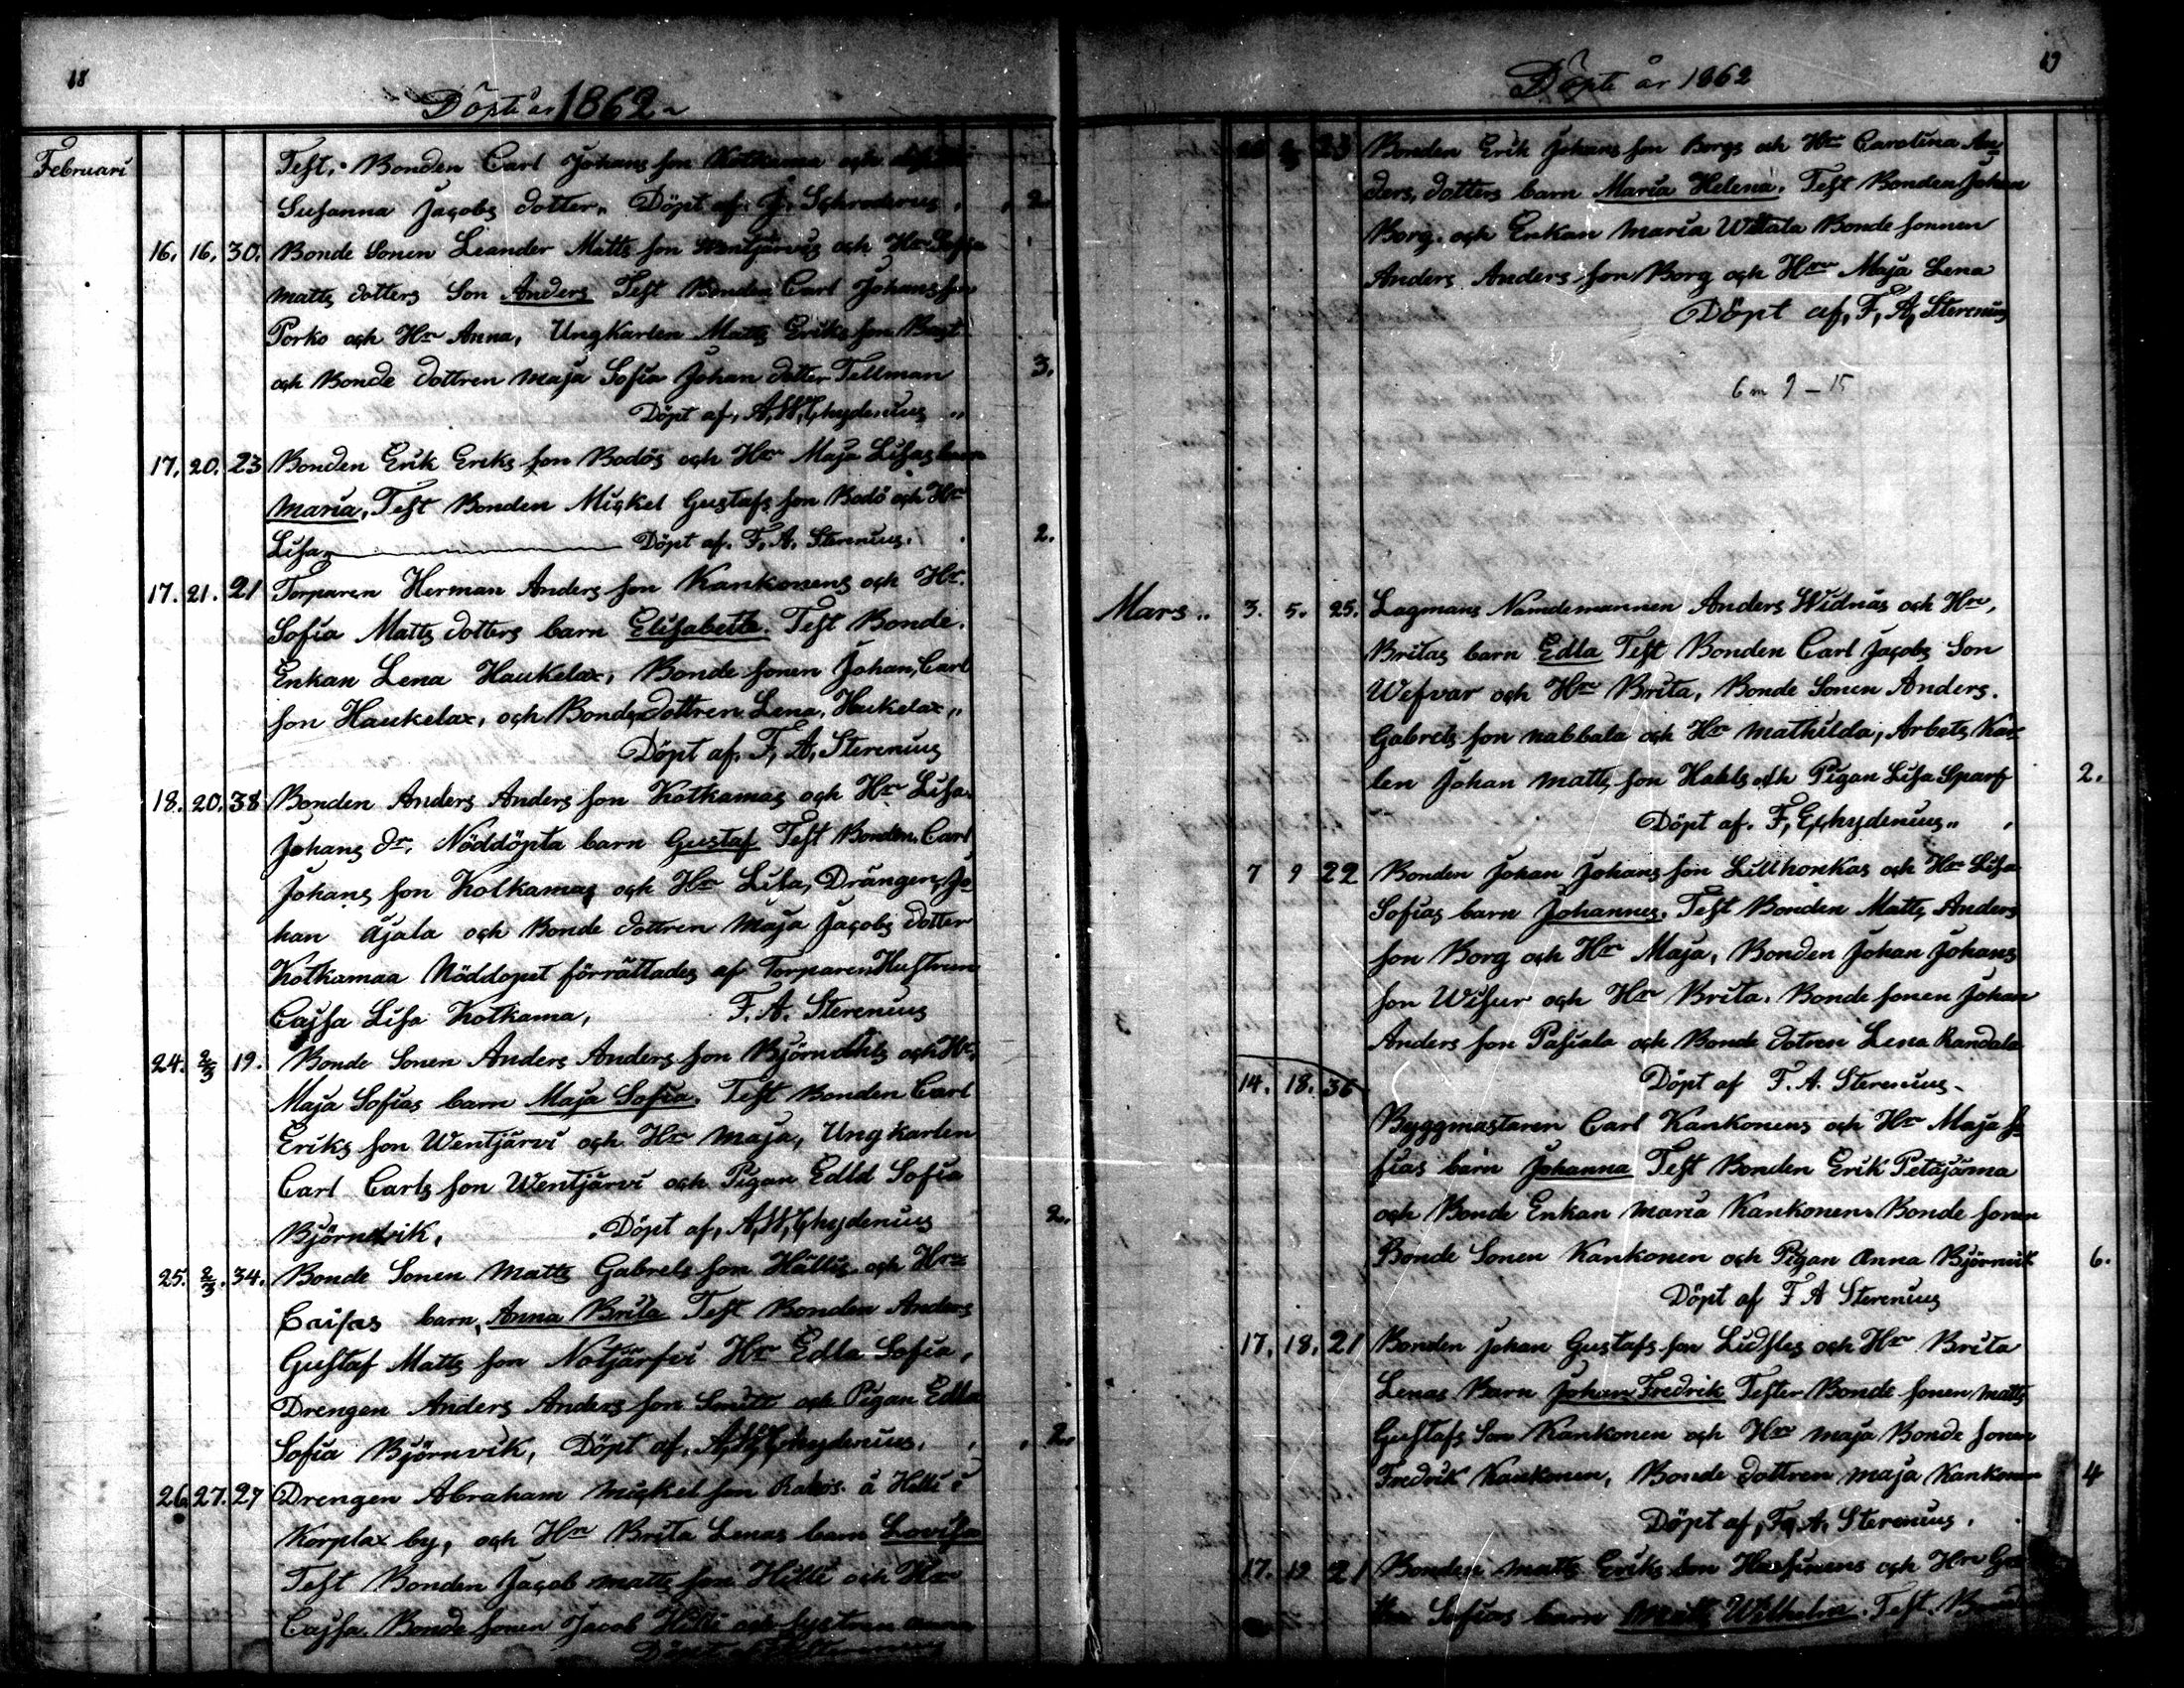 18
Döpte år 1862
Februari
Test. Bonden Carl Johans son Kotkamaa och
Susanna Jacobs dotter. Döpt af. J. Schroderus. 2.
16. 16. 30. Bonde Sonen Leander Matts son Wentjärvis och Hru Sofia
Matts dotters Son Anders Test Bonden Carl Johans son
Porko och Hru Anna, Ungkarlen Matts Eriks son
och Bonde dottren Maja Sofia Johan dotter Tellman 3.
Döpt af, A, W, Chydenius
17. 20. 23 Bonden Erik Eriks son Bodös och Hru Maja Lisas barn
Maria, Test Bonden Mickel Gustafs son Bodö och Hru
Lisa Döpt af. F. A. Sterenius. 2.
17. 21. 21 Torparen Herman Anders son Kankonens och Hr.
Sofia Matts dotters barn Elisabeth. Test Bonde.
Enkan Lena Haukelax, Bonde sonen Johan, Carl
son Haukelax, och Bonde dottren Lena, Haukelax,
Döpt af. F, A, Sterenius
18. 20. 38 Bonden Anders Anders son Kotkamas och Hru Lisa
Johans dr. Nöddöpta barn Gustaf Test Bonden Carl
Johans son Kotkamas och Hru Lisa, Drängen, Jo
han Ajala och Bonde dottren Maja Jacobs dotter
Kotkamaa Nöddopet förrättades af Torparen Hustrun
Cajsa Lisa Kotkama, F. A. Sterenius
24. 2/3 19. Bonde Sonen Anders Anders son och Hr.
Maja Sofias barn Maja Sofia. Test Bonden Carl
Eriks son Wentjärvi och Hru Maja, Ungkarlen
Carl Carls son Wentjärvi och Pigan Edla Sofia
Björndvik. Döpt af, A, W, Chydenius 2.
25. 2/3. 34. Bonde Sonen Matts Gabrels son Hältis och Hru
Caisas barn, Anna Brita Test Bonden Anders
Gustaf Matts son Notjärfvi Hru Edla Sofia,
Drengen Anders Anders son Smitt och Pigan Edla
Sofia Björnvik, Döpt af, A, W, Chydenius, 2.
26. 27. 27 Drengen Abraham Mickel son å Hilli i
Korplax by, och Hru Brita Lenas barn Lovisa
Test Bonden Jacob Matts son Hilli och Hru
Cajsa. Bonde sonen Jacob Hilli och hustrun
Döpt af
19
Döpte år 1862
23 Bonden Erik Johans son Borgs och Hru Carolina An
ders, dotters barn Maria Helena. Test Bonden Johan
Borg. och Enkan Maria Bonde sonnen
Anders Anders son Borg och Hru Maja Lena
Döpt af, F, A, Sterenius
6 m 9 - 15
Mars 3. 5. 25. Lagmans Nämdemannen Anders Widnäs och Hru,
Britas barn Edla Test Bonden Carl Jacobs Son
Wefvar och Hru Brita, Bonde Sonen Anders.
Gabrels son Nabbala och Hru Mathilda, Arbets Kar
len Johan Matts son och Pigan Lisa Sparf 2.
Döpt af. F, E, Chydenius
7 9 22 Bonden Johan Johans son Lillhonkas och Hru Lisa
Sofias barn Johannes. Test Bonden Matts Anders
son Borg och Hru Maja, Bonden Johan Johans
son och Hru Brita. Bonde sonen Johan
Anders son Pasiala och Bonde dotren Lena Randala
Döpt af F. A. Sterenius
14. 18. 36 Byggmästaren Carl Kankonens och Hru Maja So
fias barn Johanna Test Bonden Erik Petäjäma
och Bonde Enkan Maria Kankonen Bonde sonen
Bonde Sonen Kankonen och Pigan Anna Björnvik 6.
Döpt af F A Sterenius
17. 18. 21 Bonden Johan Gustafs son och Hru Brita
Lenas Barn Johan Fredrik Tester Bonde sonen Matts
Gustafs Son Kankonen och Hru Maja Bonde sonen
Fredrik Kankonen, Bonde dottren Maja Kankonen 4
Döpt af, F, A, Sterenius.
17. 19 21 Bonden Matts Eriks son och Hru
Sofias barn Matts Wilhelm. Test.